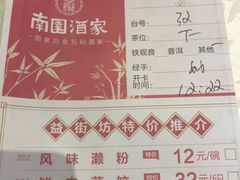 南園酒家
国家白金五钻酒家
台号: 32
茶位:
铁观音 普洱 其他
经手:
开卡
时间: 12:22
益街坊特价推介
302 风味濑粉 特价 12元/碗
32元/